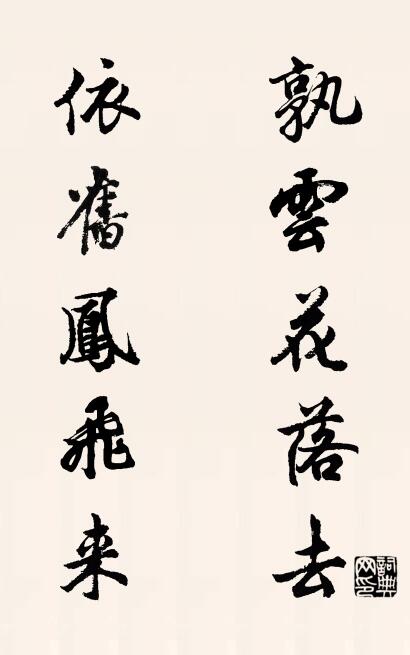 孰雲花落去
依舊鳳飛来
詞典网印